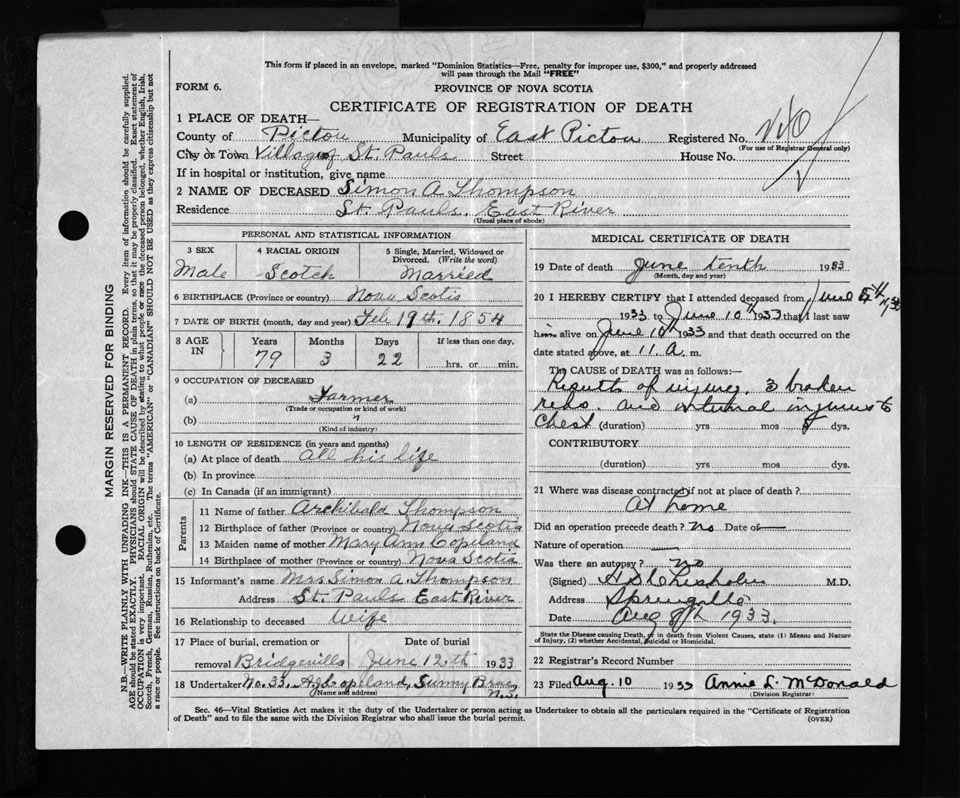 This form if placed in an envelope, marked "Dominion Statistics—Free, penalty for improper use, $300," and properly addressed
will pass through the Mail "FREE"
FORM 6.
PROVINCE OF NOVA SCOTIA
CERTIFICATE OF REGISTRATION OF DEATH
1 PLACE OF DEATH—
County of Pictou Municipality of East Pictou Registered No.
(For use of Registrar General only)
City or Town Village of St. Pauls Street House No.
If in hospital or institution, give name
2 NAME OF DECEASED Simon A Thompson
Residence St. Pauls, East River
(Usual place of abode)
PERSONAL AND STATISTICAL INFORMATION
3 SEX 4 RACIAL ORIGIN 5 Single, Married, Widowed or Divorced. (Write the word)
Male Scotch Married
6 BIRTHPLACE (Province or country) Nova Scotia
7 DATE OF BIRTH (month, day and year) Feb 19th. 1854
8 AGE IN Years Months Days If less than one day,
79 3 22 hrs. or min.
9 OCCUPATION OF DECEASED
(a) Farmer
(Trade or occupation or kind of work)
(b) "
(Kind of industry)
10 LENGTH OF RESIDENCE (in years and months)
(a) At place of death all his life
(b) In province
(c) In Canada (if an immigrant)
Parents
11 Name of father Archibald Thompson
12 Birthplace of father (Province or country) Nova Scotia
13 Maiden name of mother Mary Ann Copeland
14 Birthplace of mother (Province or country) Nova Scotia
15 Informant's name Mrs Simon A. Thompson
Address St. Pauls East River
16 Relationship to deceased Wife
17 Place of burial, cremation or removal Bridgeville Date of burial June 12th 1933
18 Undertaker No. 33. Copeland, Sunny Brae, N.S.
(Name and address)
MEDICAL CERTIFICATE OF DEATH
19 Date of death June tenth 1933
(Month, day and year)
20 I HEREBY CERTIFY that I attended deceased from June
1933 to June 10th 1933 that I last saw
him alive on June 10th 1933 and that death occurred on the
date stated above, at 11.A m.
The CAUSE OF DEATH was as follows:—
Results of injury, 3 broken
ribs, and internal injuries to
Chest (duration) yrs mos dys.
CONTRIBUTORY
(duration) yrs. mos. dys.
21 Where was disease contracted if not at place of death?
At home
Did an operation precede death? no Date of —
Nature of operation —
Was there an autopsy? no
(Signed) Chisholm M.D.
Address Springville
Date Aug 8th 1933.
State the Disease causing Death, or in death from Violent Causes, state (1) Means and Nature
of Injury, (2) whether Accidental, Suicidal or Homicidal.
22 Registrar's Record Number
23 Filed Aug. 10 1933 Annie L. McDonald
(Division Registrar)
Sec. 46—Vital Statistics Act makes it the duty of the Undertaker or person acting as Undertaker to obtain all the particulars required in the "Certificate of Registration
of Death" and to file the same with the Division Registrar who shall issue the burial permit.
(OVER)
MARGIN RESERVED FOR BINDING
N.B.—WRITE PLAINLY WITH UNFADING INK—THIS IS A PERMANENT RECORD. Every item of information should be carefully supplied.
AGE should be stated EXACTLY. PHYSICIANS should STATE CAUSE OF DEATH in plain terms, so that it may be properly classified. Exact statement of
OCCUPATION is very important. RACIAL ORIGIN will be described by stating to what people or race the deceased person belonged, whether English, Irish,
Scotch, French, German, Russian, Ruthenian, etc. The terms "AMERICAN" or "CANADIAN" SHOULD NOT BE USED as they express citizenship but not
a race or people. See instructions on back of Certificate.